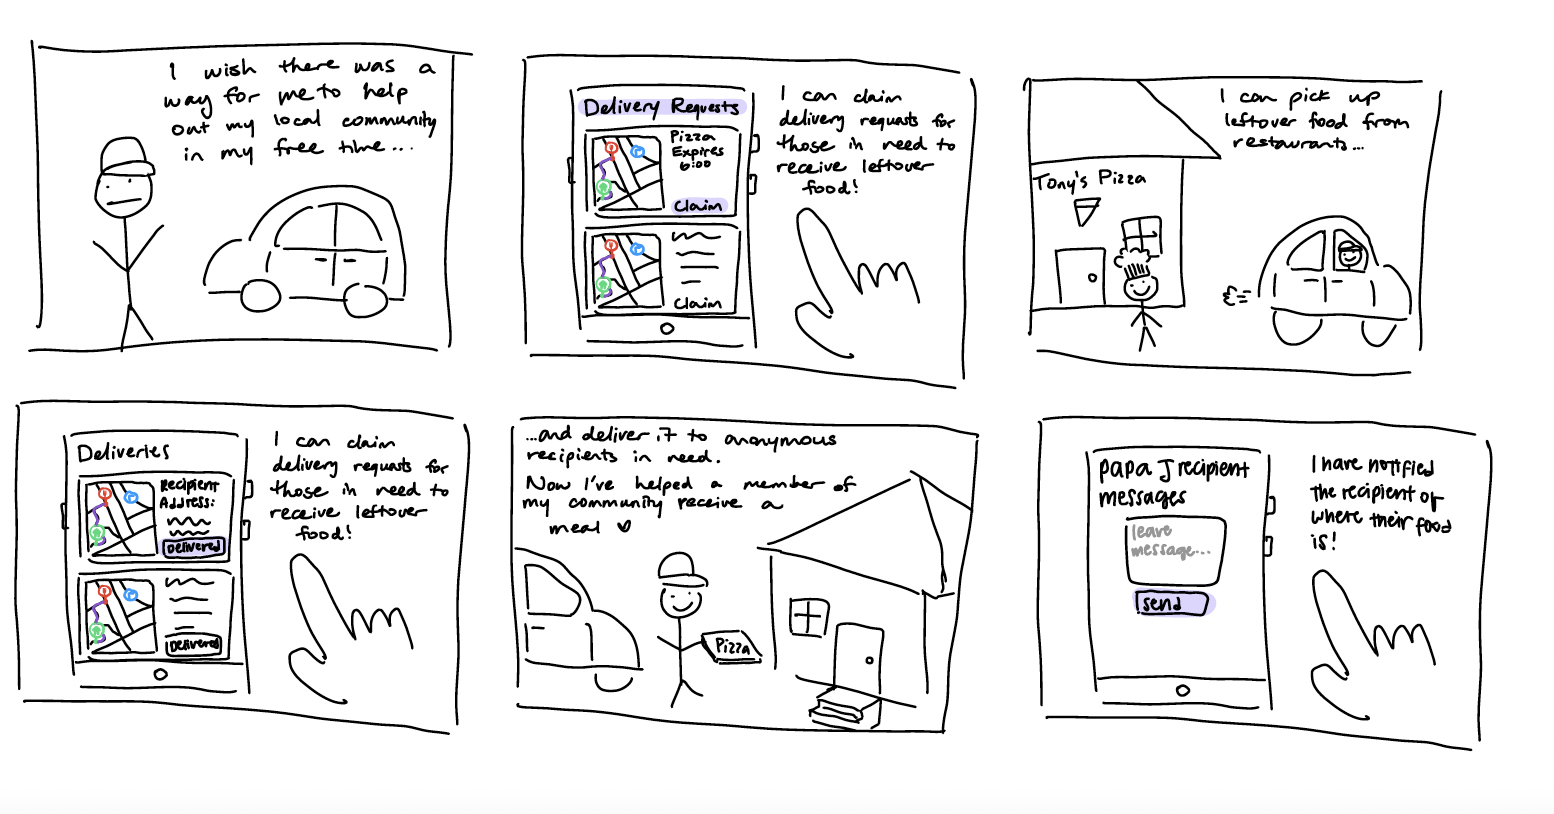 I wish there was a
way for me to help
out my local community
in my free time...
Delivery Requests
Pizza
Expires
6:00
Claim
Claim
I can claim
delivery requests for
those in need to
receive leftover
food!
I can pick up
leftover food from
restaurants...
Tony's Pizza
Deliveries
Recipient
Address:
Delivered
Delivered
I can claim
delivery requests for
those in need to
receive leftover
food!
...and deliver it to anonymous
recipients in need.
Now I've helped a member of
my community receive a
meal ♡
Pizza
papa J recipient
messages
leave
message...
send
I have notified
the recipient of
where their food
is!